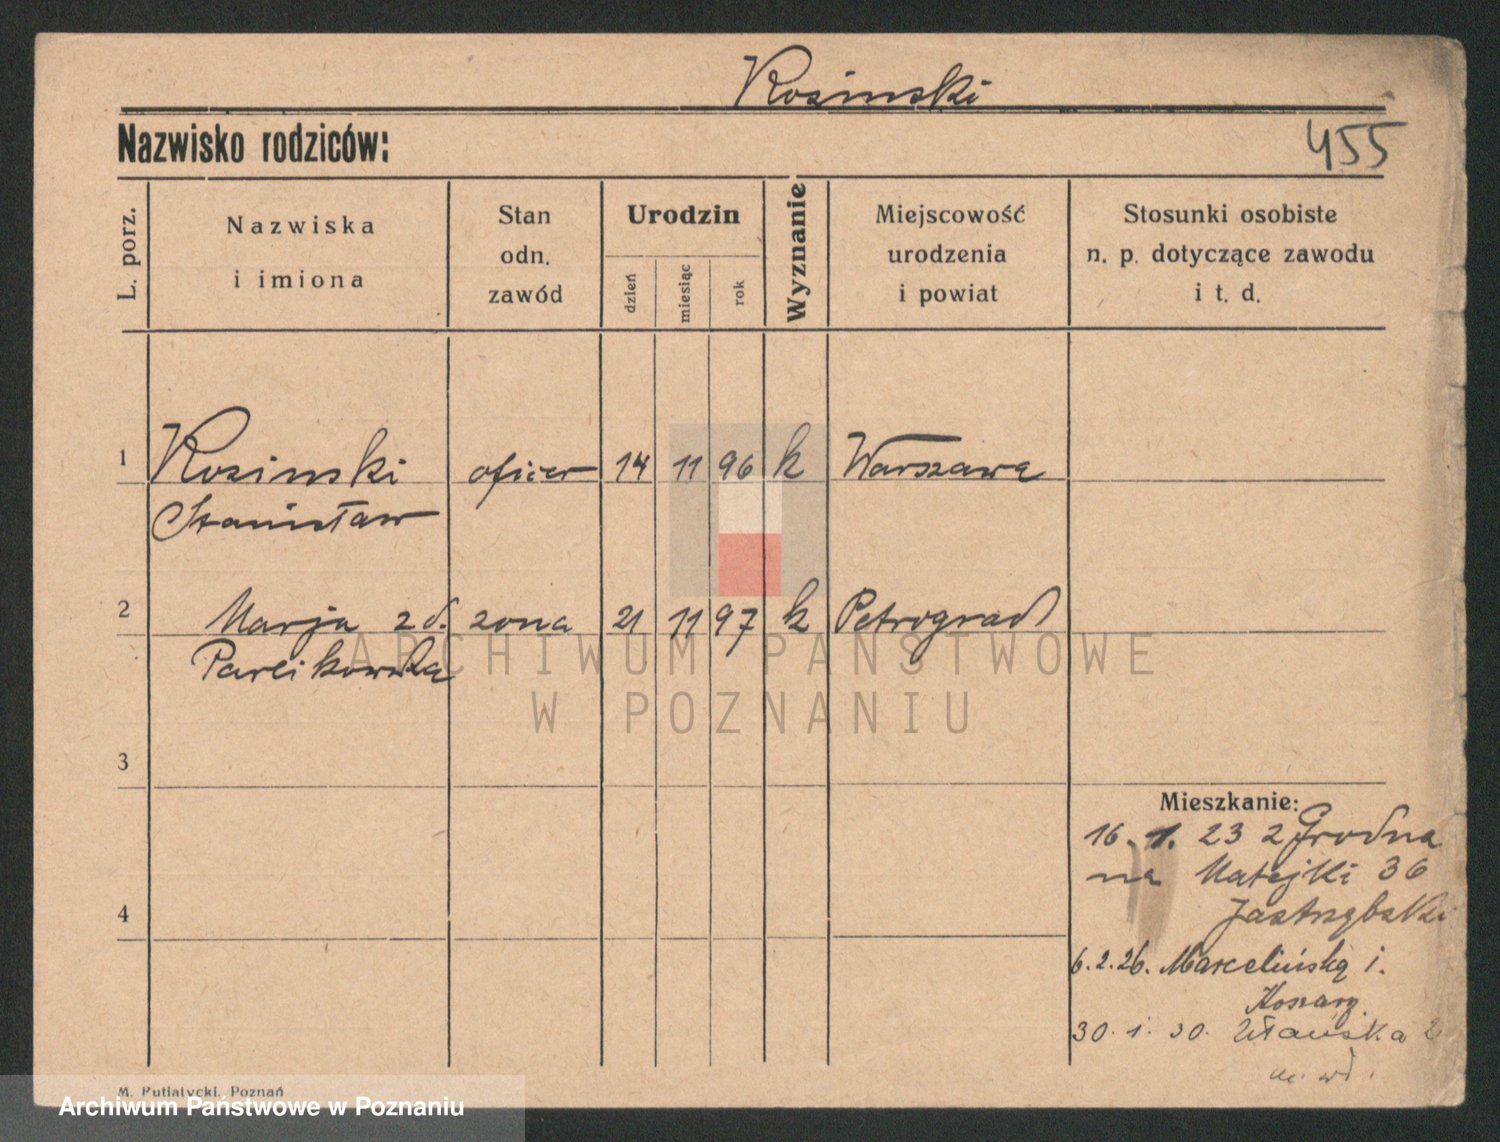 Rosinski
Nazwisko rodziców:
455
L. porz.
Nazwiska
i imiona
Stan
odn.
zawód
Urodzin
dzień
miesiąc
rok
Wyznanie
Miejscowość
urodzenia
i powiat
Stosunki osobiste
n. p. dotyczące zawodu
i t. d.
1 Rosinski oficer 14 11 96 k Warszawa
Stanisław
2 Marja zd. zona 21 11 97 k Petrograd
Pavlikowska
ARCHIWUM PAŃSTWOWE
W POZNANIU
3
Mieszkanie:
16. 1. 23 z Grodna
na Matejki 36
Jastrzębski
4
6.2.26. Marcelińską i.
Koszary
30. 1. 30.
M. Putiatycki, Poznań
Archiwum Państwowe w Poznaniu